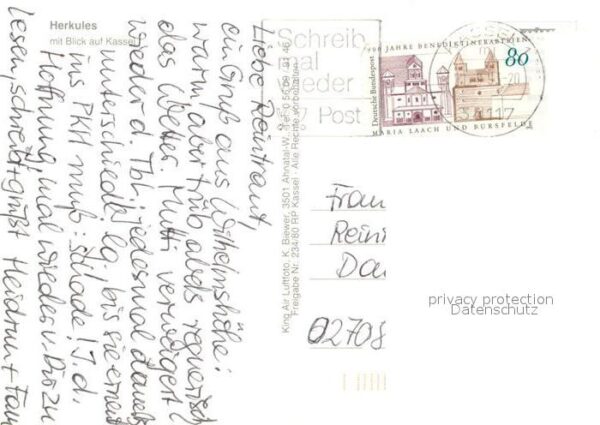 Herkules
mit Blick auf Kassel
Liebe Reintraut,
ein Gruß aus Wilhelmshöhe:
warm, aber trüb, abends regnerisch
das Wetter. Mutti verweigert
wieder d. Tbl., jedesmal
bis sie erneut
ins PKH muß: schade! I. d.
Hoffnung, mal wieder v. Dir zu
lesen, schreibt + grüßt Heidrun + Fam
King Air Luftfoto, K. Biewer, 3501 Ahnatal-W., Tel. 0 56 09 / 91 46
Freigabe Nr. 234/80 RP Kassel · Alle Rechte vorbehalten
Schreib
mal
wieder
Post
900 JAHRE BENEDIKTINERABTEIEN
80
Deutsche Bundespost
MARIA LAACH UND BURSFELDE
Frau
Rein
02708
privacy protection
Datenschutz